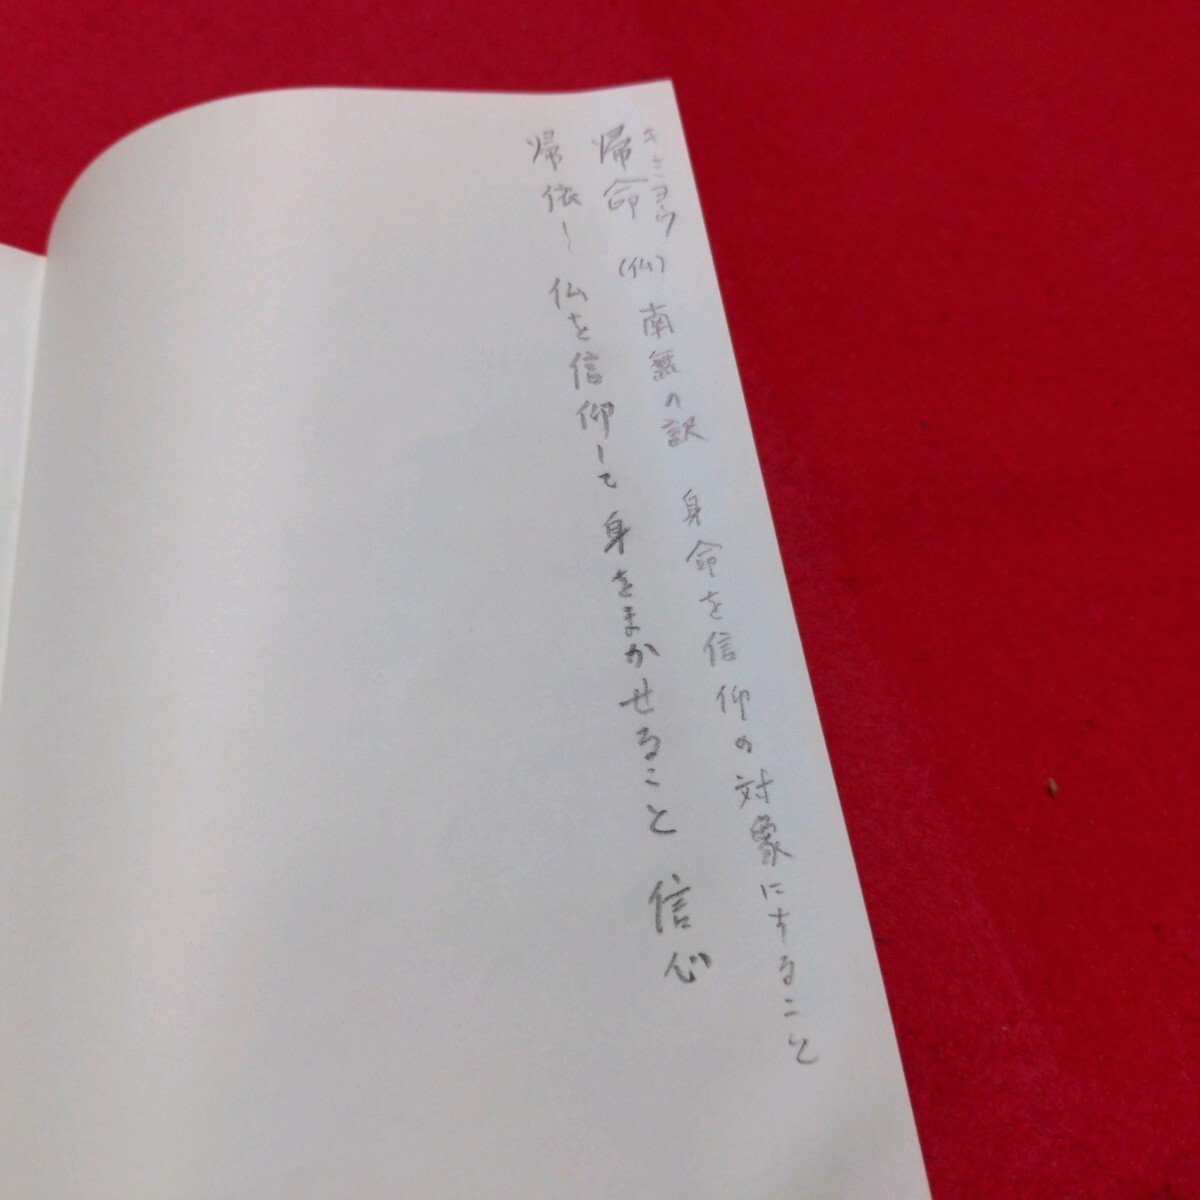 キミョウ
帰命 (仏) 南無の訳 身命を信仰の対象にすること
帰依ー仏を信仰して身をまかせること 信心